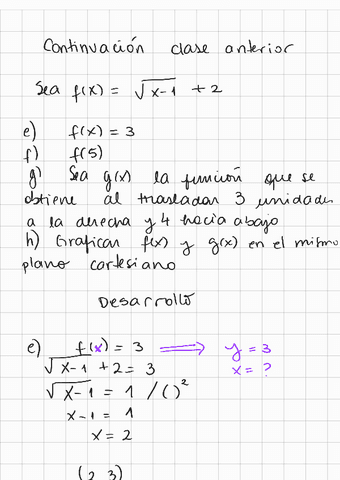 Continuación clase anterior
Sea f(x) = √x-1 + 2
e) f(x) = 3
f) f(5)
g) Sea g(x) la función que se
obtiene al trasladar 3 unidades
a la derecha y 4 hacia abajo
h) Graficar f(x) y g(x) en el mismo
plano cartesiano
Desarrollo
e) f(x) = 3 ⟹ y = 3
√x-1 + 2 = 3 x = ?
√x-1 = 1 /()²
x-1 = 1
x = 2
(2,3)